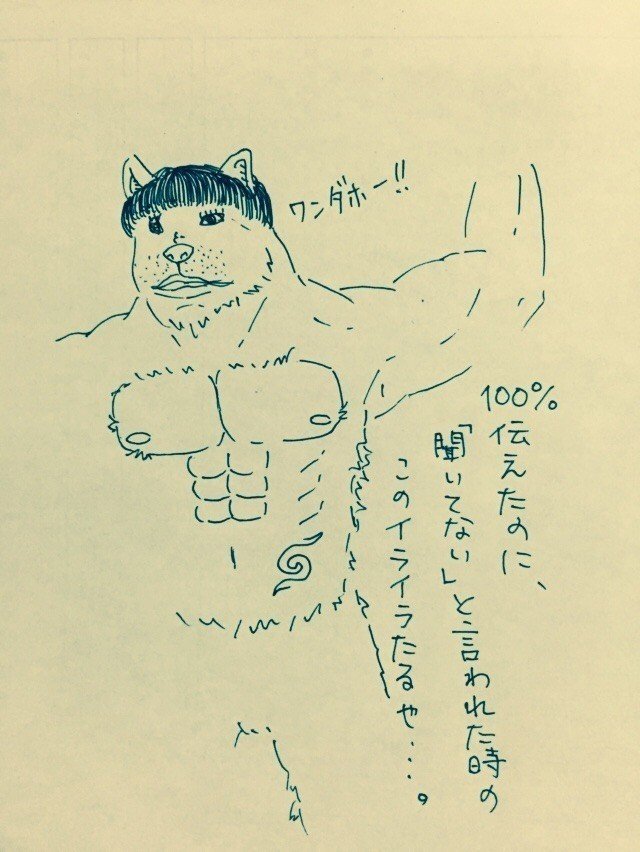 ワンダホー!!
100%伝えたのに、
「聞いてない」と言われた時の
このイライラたるや…。